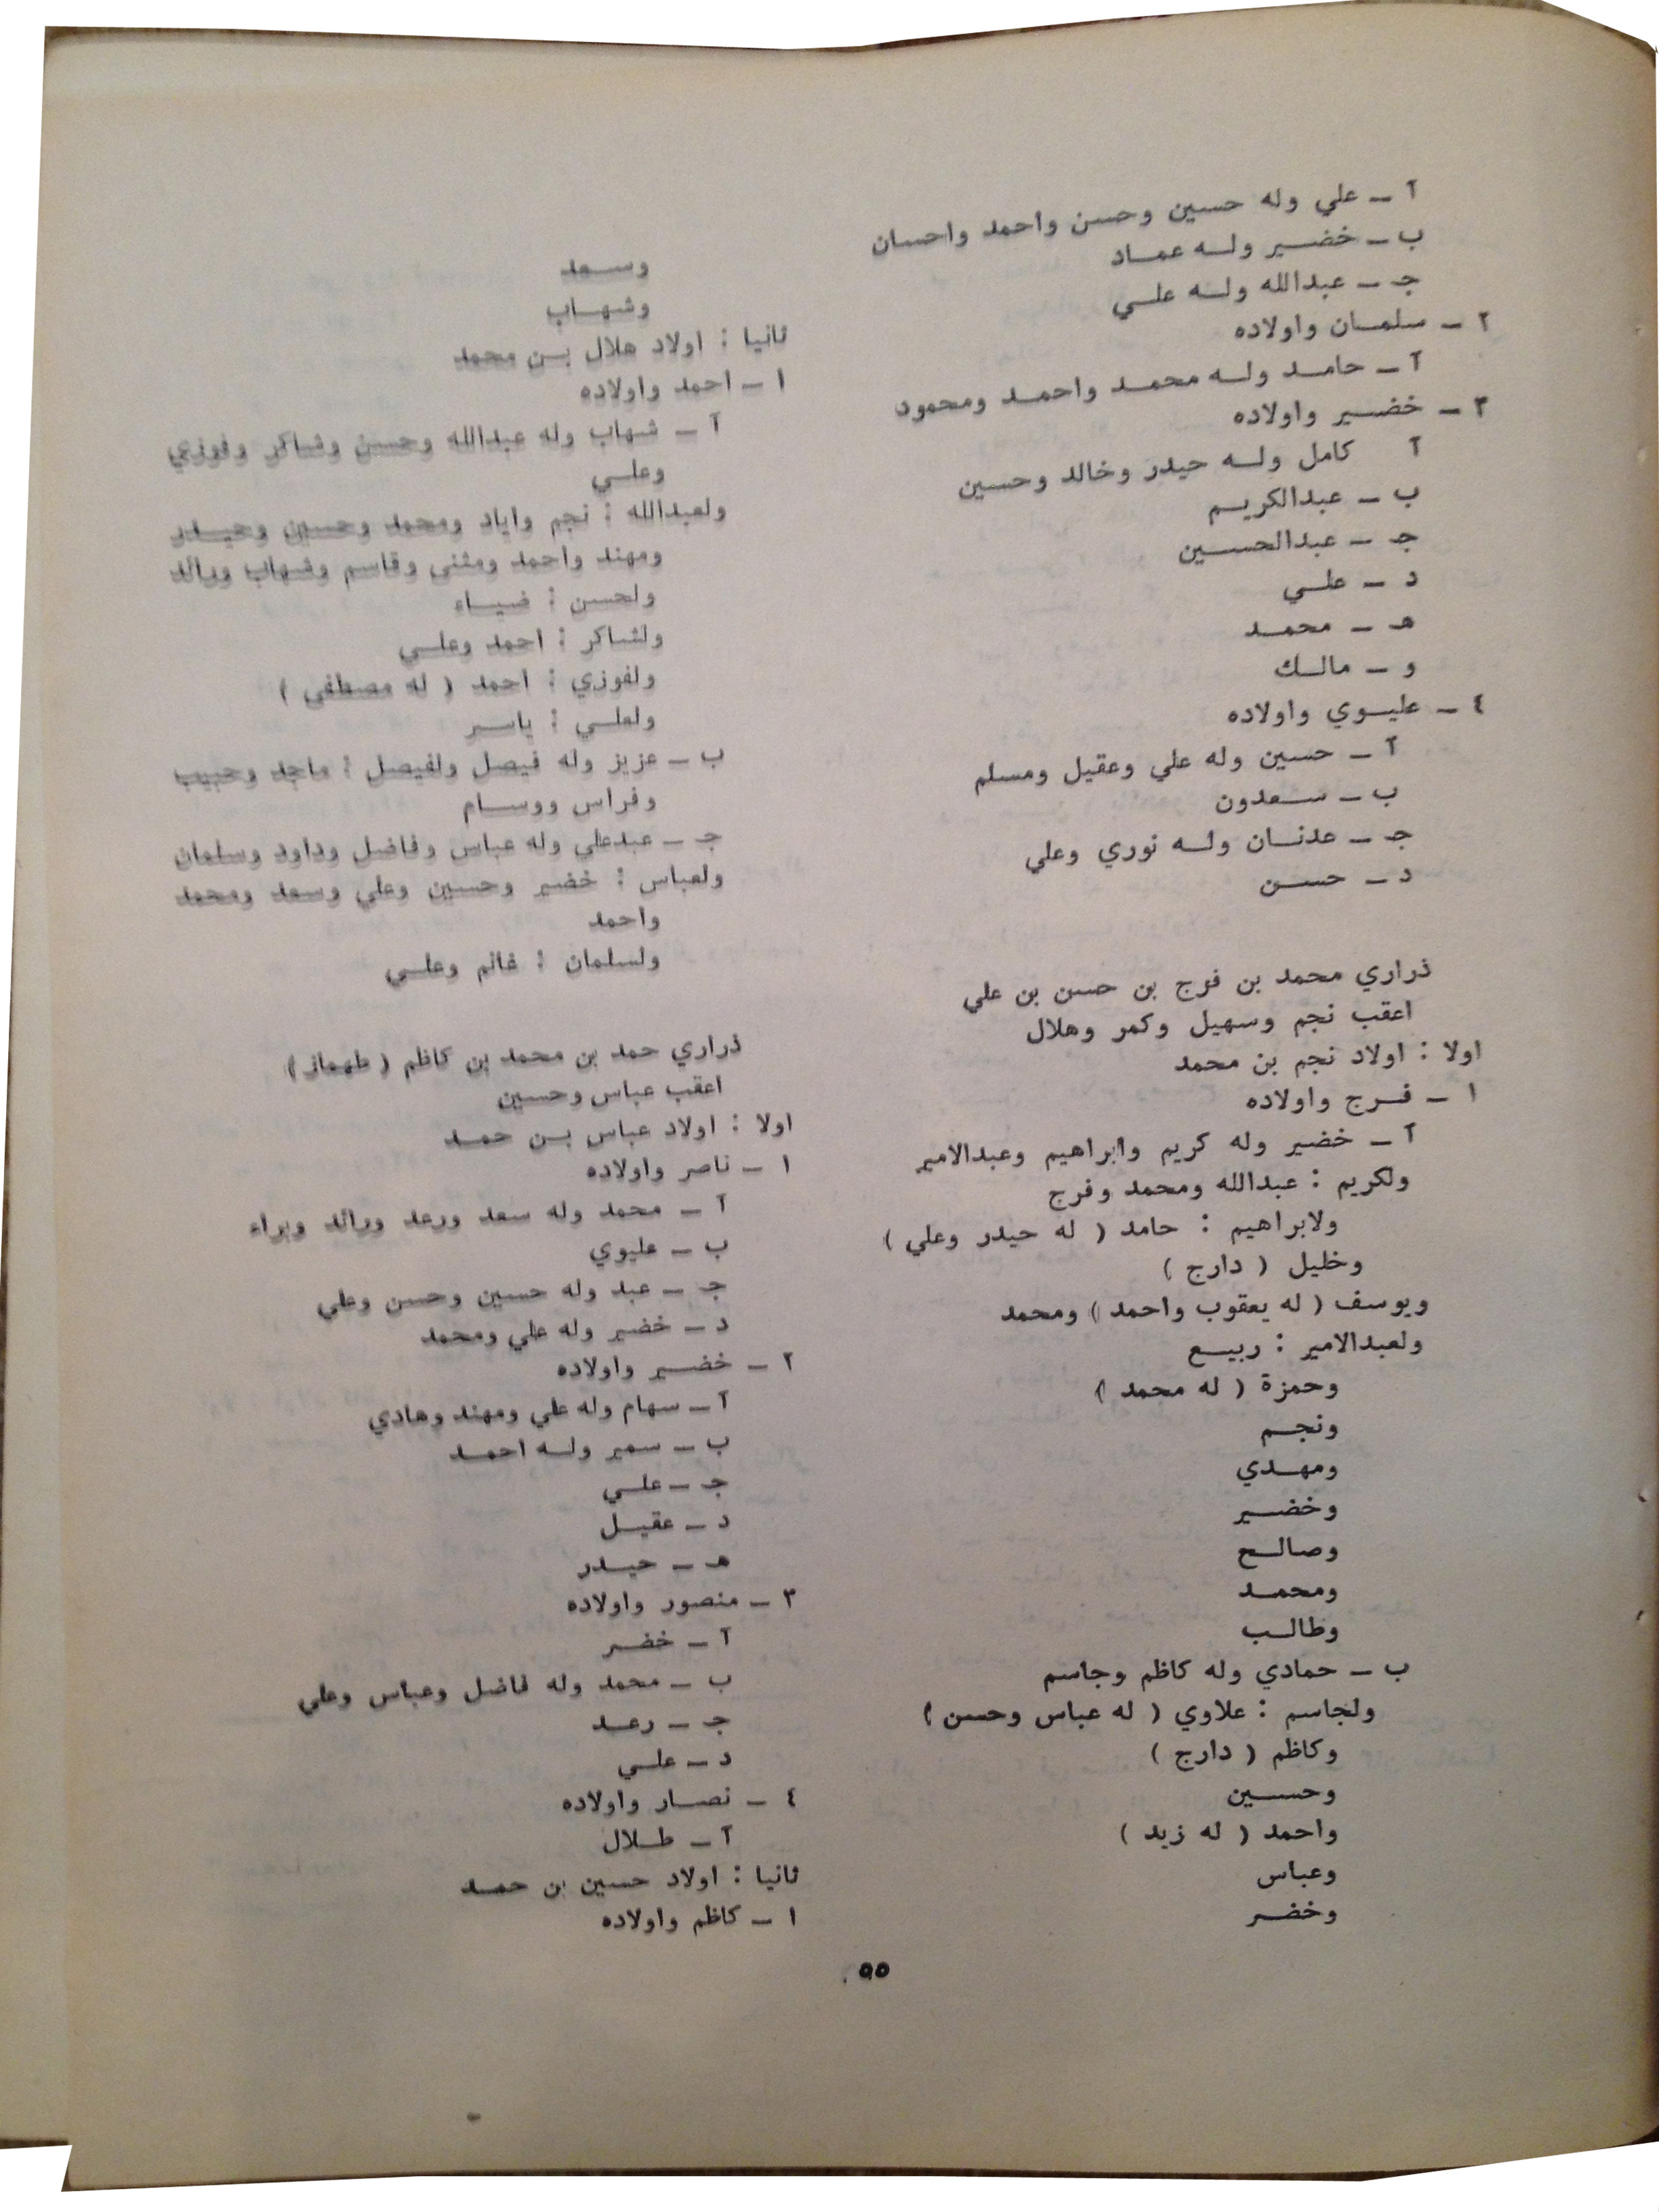 آ ــ علي وله حسين وحسن واحمد واحسان
ب ــ خضـــير ولـــه عمـــاد
جـ ــ عبدالله ولـــه علـــي
٢ ــ سلمـــان واولاده
آ ــ حامـــد ولـــه محمـــد واحمـــد ومحمود
٣ ــ خضـــير واولاده
آ كامل ولـــه حيدر وخالد وحسين
ب ــ عبدالكريـــم
جـ ــ عبدالحســـين
د ــ علـــي
هـ ــ محمـــد
و ــ مالـــك
٤ ــ عليـــوي واولاده
آ ــ حسين وله علي وعقيل ومسلم
ب ــ ســـعدون
جـ ــ عدنـــان ولـــه نوري وعلي
د ــ حســـن
ذراري محمد بن فرج بن حسن بن علي
اعقب نجم وسهيل وكمر وهلال
اولا : اولاد نجم بن محمد
١ ــ فـــرج واولاده
آ ــ خضير وله كريم وابراهيم وعبدالامير
ولكريم : عبدالله ومحمد وفرج
ولابراهيم : حامد ( له حيدر وعلي )
وخليل ( دارج )
ويوسف ( له يعقوب واحمد ) ومحمد
ولعبدالامير : ربيـــع
وحمزة ( له محمد )
ونجـــم
ومهـــدي
وخضـــير
وصالـــح
ومحمـــد
وطالـــب
ب ــ حمادي وله كاظم وجاسم
ولجاسم : علاوي ( له عباس وحسن )
وكاظم ( دارج )
وحســـين
واحمد ( له زيد )
وعباس
وخضـــر
وســـعد
وشهـــاب
ثانيا : اولاد هلال بـــن محمد
١ ــ احمد واولاده
آ ــ شهاب وله عبدالله وحسن وشاكر وفوزي
وعلـــي
ولعبدالله : نجم واياد ومحمد وحسين وحيـــدر
ومهند واحمد ومثنى وقاسم وشهاب ورائد
ولحسن : ضيـــاء
ولشاكر : احمد وعلـــي
ولفوزي : احمد ( له مصطفى )
ولعلـــي : ياســـر
ب ــ عزيز وله فيصل ولفيصل : ماجد وحبيب
وفراس ووســـام
جـ ــ عبدعلي وله عباس وفاضل وداود وسلمان
ولعباس : خضير وحسين وعلي وسعد ومحمد
واحمد
ولسلمان : غانم وعلـــي
ذراري حمد بن محمد بن كاظم ( طهماز )
اعقب عباس وحسين
اولا : اولاد عباس بـــن حمـــد
١ ــ ناصر واولاده
آ ــ محمد وله سعد ورعد ورائد وبراء
ب ــ عليوي
جـ ــ عبد وله حسين وحسن وعلي
د ــ خضير وله علي ومحمد
٢ ــ خضـــير واولاده
آ ــ سهام وله علي ومهند وهادي
ب ــ سمير ولـــه احمـــد
جـ ــ علـــي
د ــ عقيـــل
هـ ــ حيـــدر
٣ ــ منصور واولاده
آ ــ خضـــر
ب ــ محمد وله فاضل وعباس وعلي
جـ ــ رعـــد
د ــ علـــي
٤ ــ نصـــار واولاده
آ ــ طـــلال
ثانيا : اولاد حسين بن حمـــد
١ ــ كاظم واولاده
٥٥